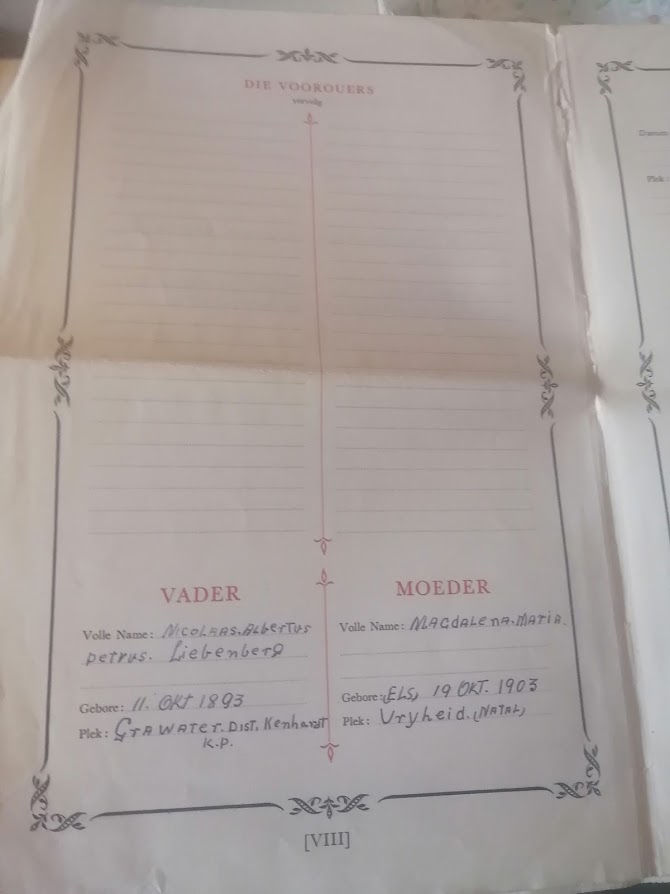 DIE VOOROUERS
vervolg
VADER
Volle Name: NICOLAAS. ALBERTUS
petrus. Liebenberg
Gebore: 11. OKT 1893
Plek: GRAWATER. DIST. Kenhardt
K.P.
MOEDER
Volle Name: MAGDALENA. MARIA.
Gebore: (ELS) 19 OKT. 1903
Plek: Vryheid. (NATAL)
[VIII]
Datum
Plek :